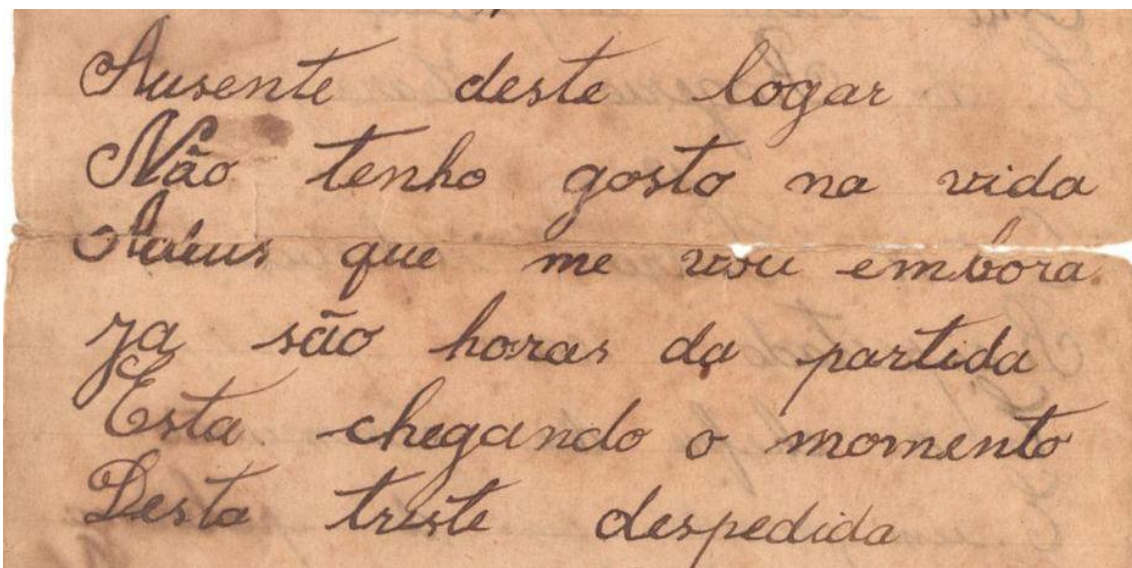 Ausente deste logar
Não tenho gosto na vida
Adeus que me vou embora
ja são horas da partida
Esta chegando o momento
Desta triste despedida